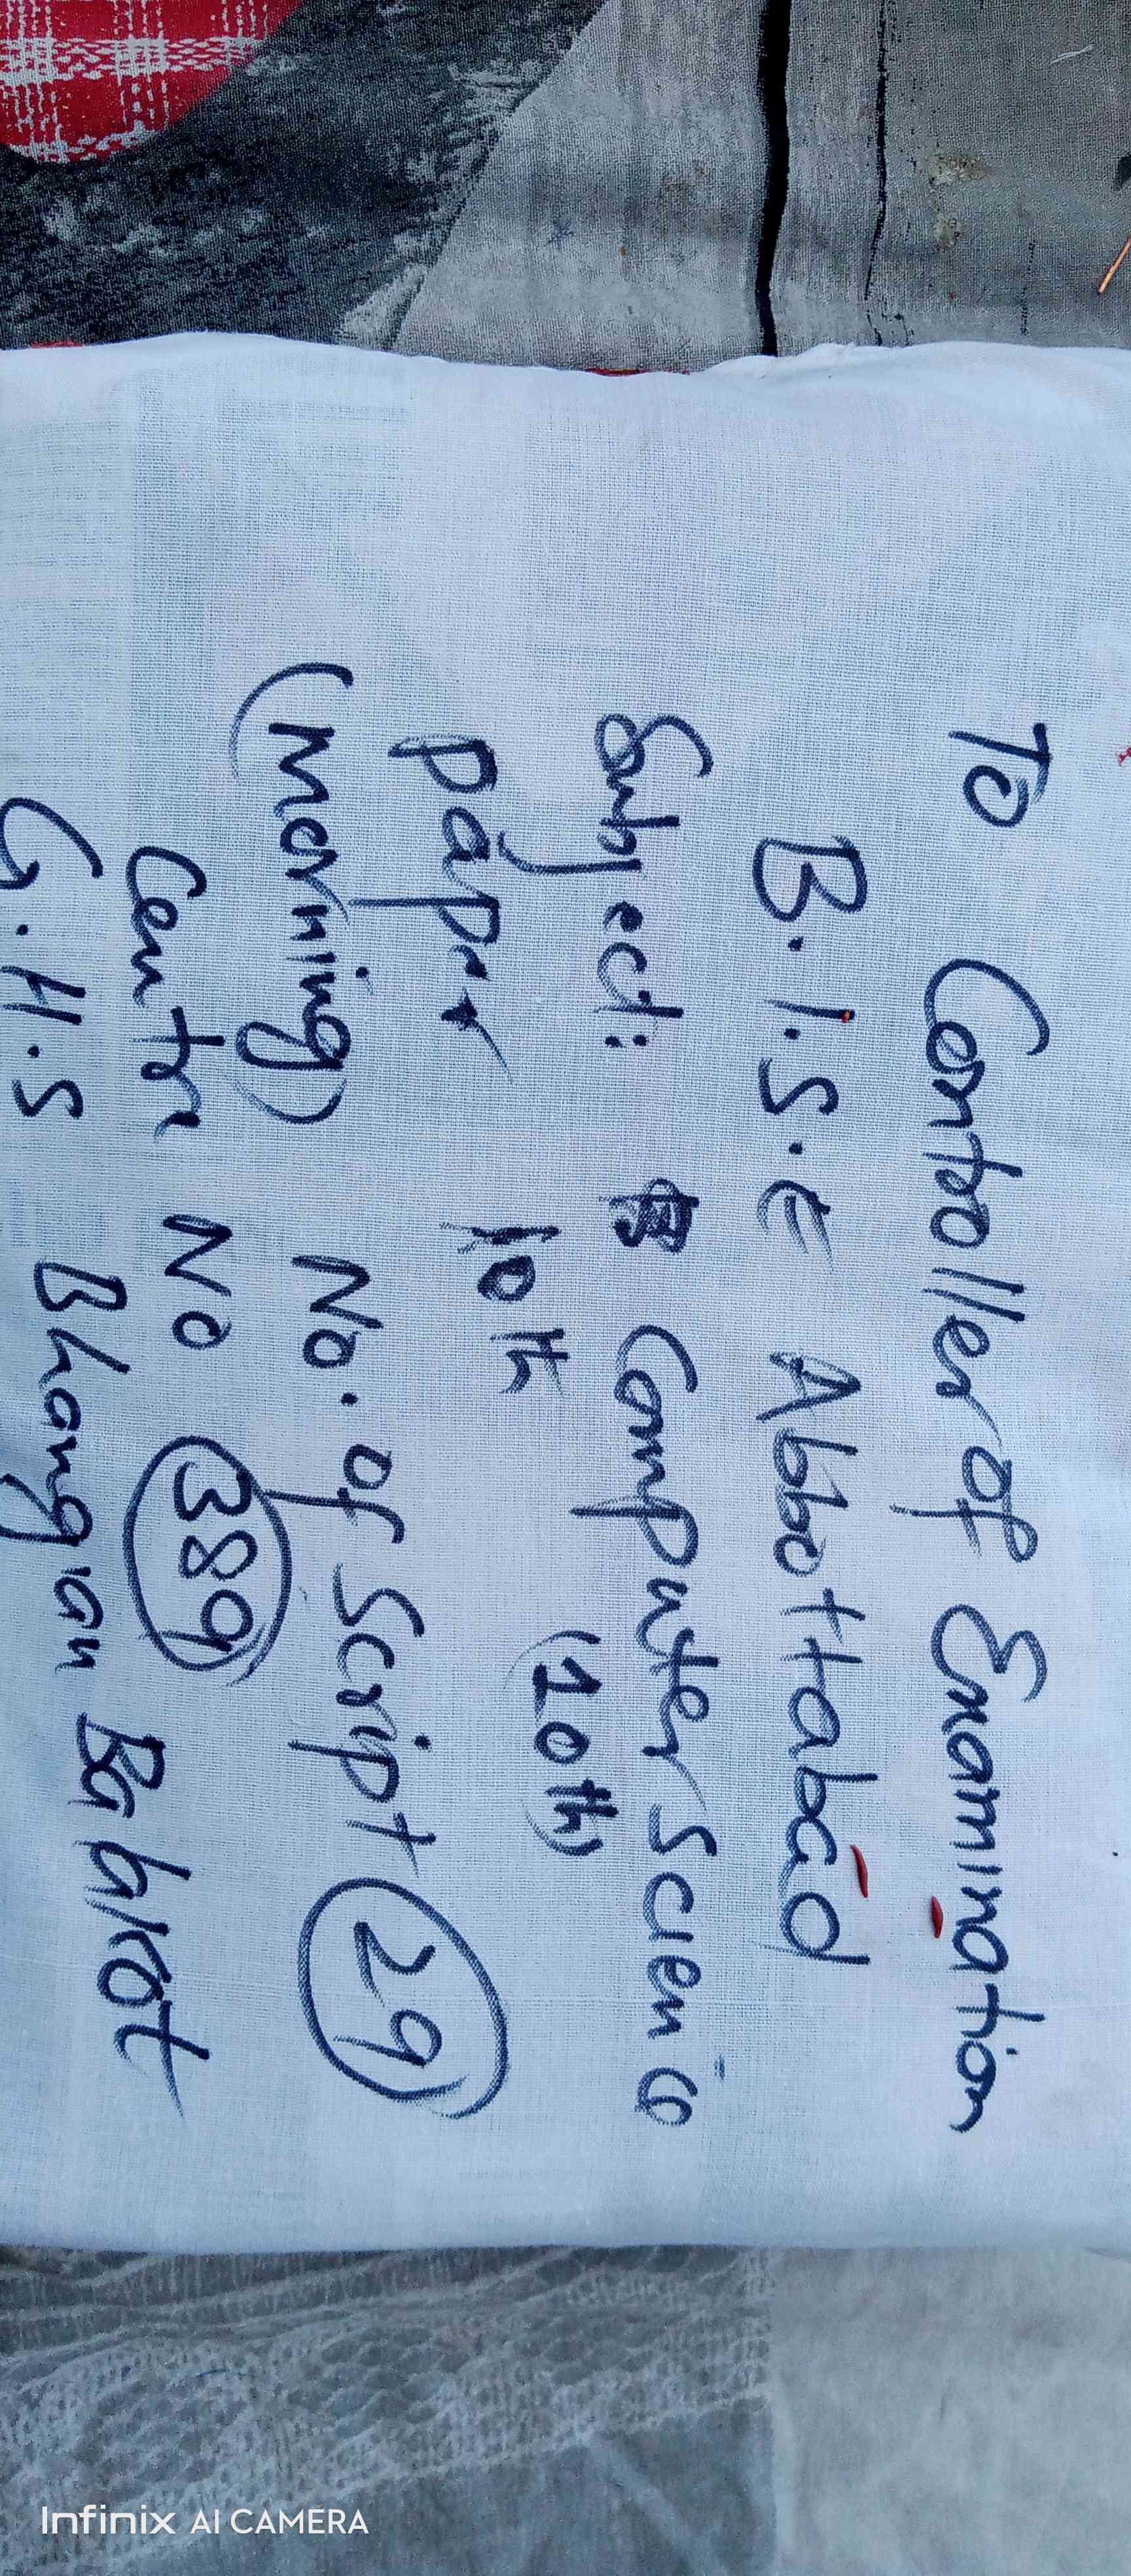 To Controller of Examination
B.I.S.E Abbottabad
Subject: Computer Science
(10th)
paper 10th
(Morning) No. of Script 29
Centre No 389
G.H.S Bhangian Ba bkot
Infinix AI CAMERA